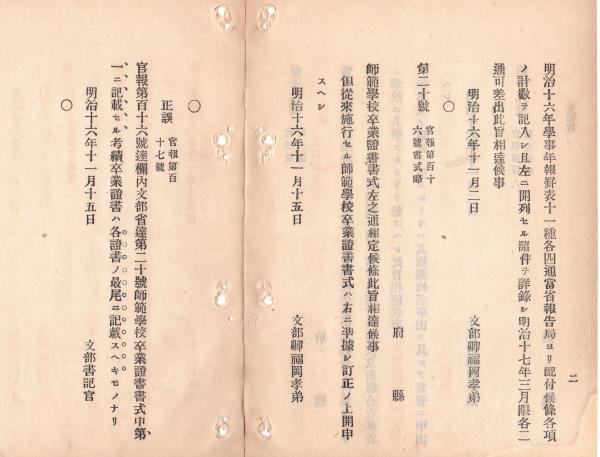 二
明治十六年學事年報幷表十一種各四通當省報告局ヨリ配付候條各項
ノ計數ヲ記入シ且左ニ開列セル諸件ヲ詳錄シ明治十七年三月限各二
通可差出此旨相達候事
明治十六年十一月二日
文部卿福岡孝弟
〇
第二十號 官報第百十六號書式略
府縣
師範學校卒業證書書式左之通相定候條此旨相達候事
但從來施行セル師範學校卒業證書書式ハ右ニ準據シ訂正ノ上開申
スヘシ
明治十六年十一月十五日
文部卿福岡孝弟
〇
正誤 官報第百十七號
官報第百十六號達欄內文部省達第二十號師範學校卒業證書書式中第、
一ニ記載セル考績卒業證書ハ各證書ノ最尾ニ記載スヘキモノナリ
明治十六年十一月十五日
文部書記官
〇